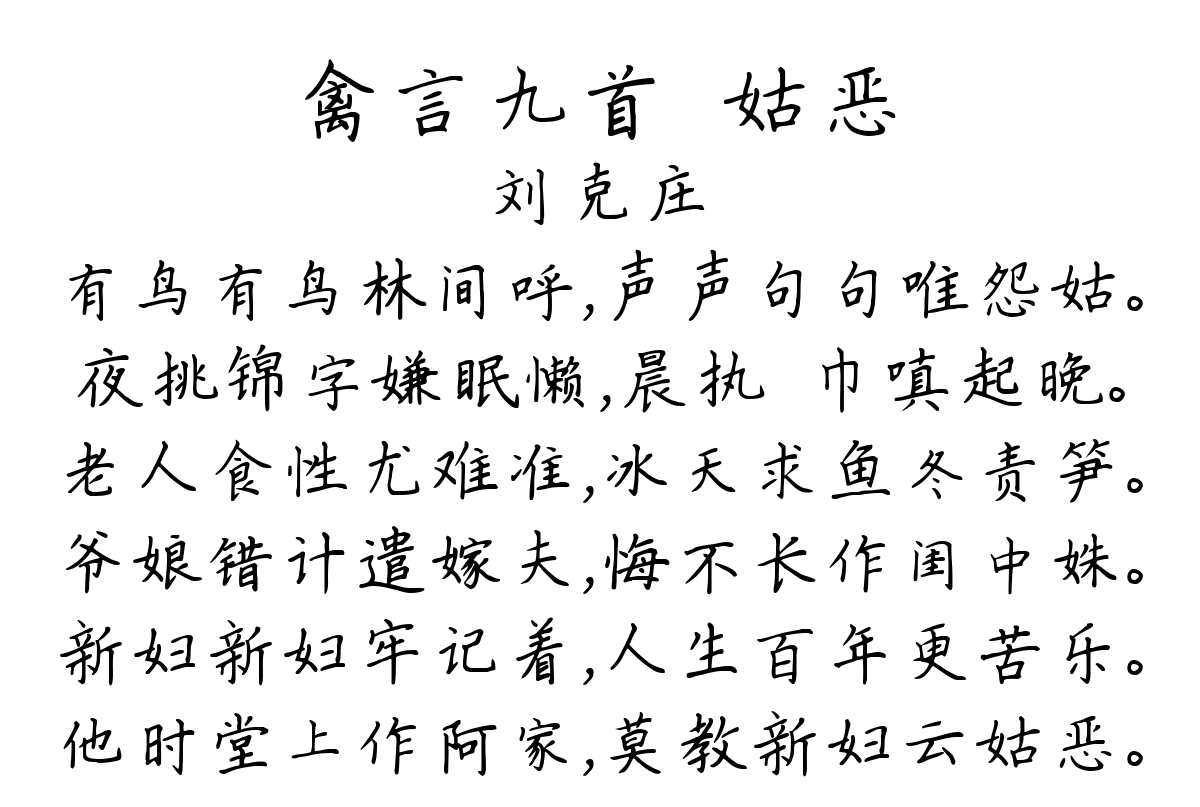 禽言九首 姑恶
刘克庄
有鸟有鸟林间呼,声声句句唯怨姑。
夜挑锦字嫌眠懒,晨执 巾嗔起晚。
老人食性尤难准,冰天求鱼冬责笋。
爷娘错计遣嫁夫,悔不长作闺中姝。
新妇新妇牢记着,人生百年更苦乐。
他时堂上作阿家,莫教新妇云姑恶。